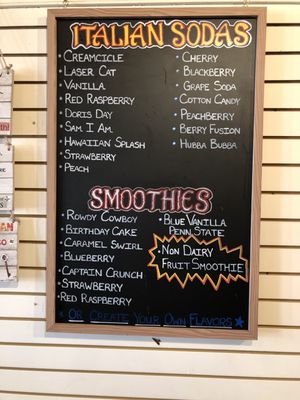 ITALIAN SODAS
CREAMCICLE
LASER CAT
VANILLA
RED RASPBERRY
DORIS DAY
SAM I AM
HAWAIIAN SPLASH
STRAWBERRY
PEACH
CHERRY
BLACKBERRY
GRAPE SODA
COTTON CANDY
PEACHBERRY
BERRY FUSION
HUBBA BUBBA
SMOOTHIES
ROWDY COWBOY
BIRTHDAY CAKE
CARAMEL SWIRL
BLUEBERRY
CAPTAIN CRUNCH
STRAWBERRY
RED RASPBERRY
BLUE VANILLA
PENN STATE
NON DAIRY
FRUIT SMOOTHIE
OR CREATE YOUR OWN FLAVORS